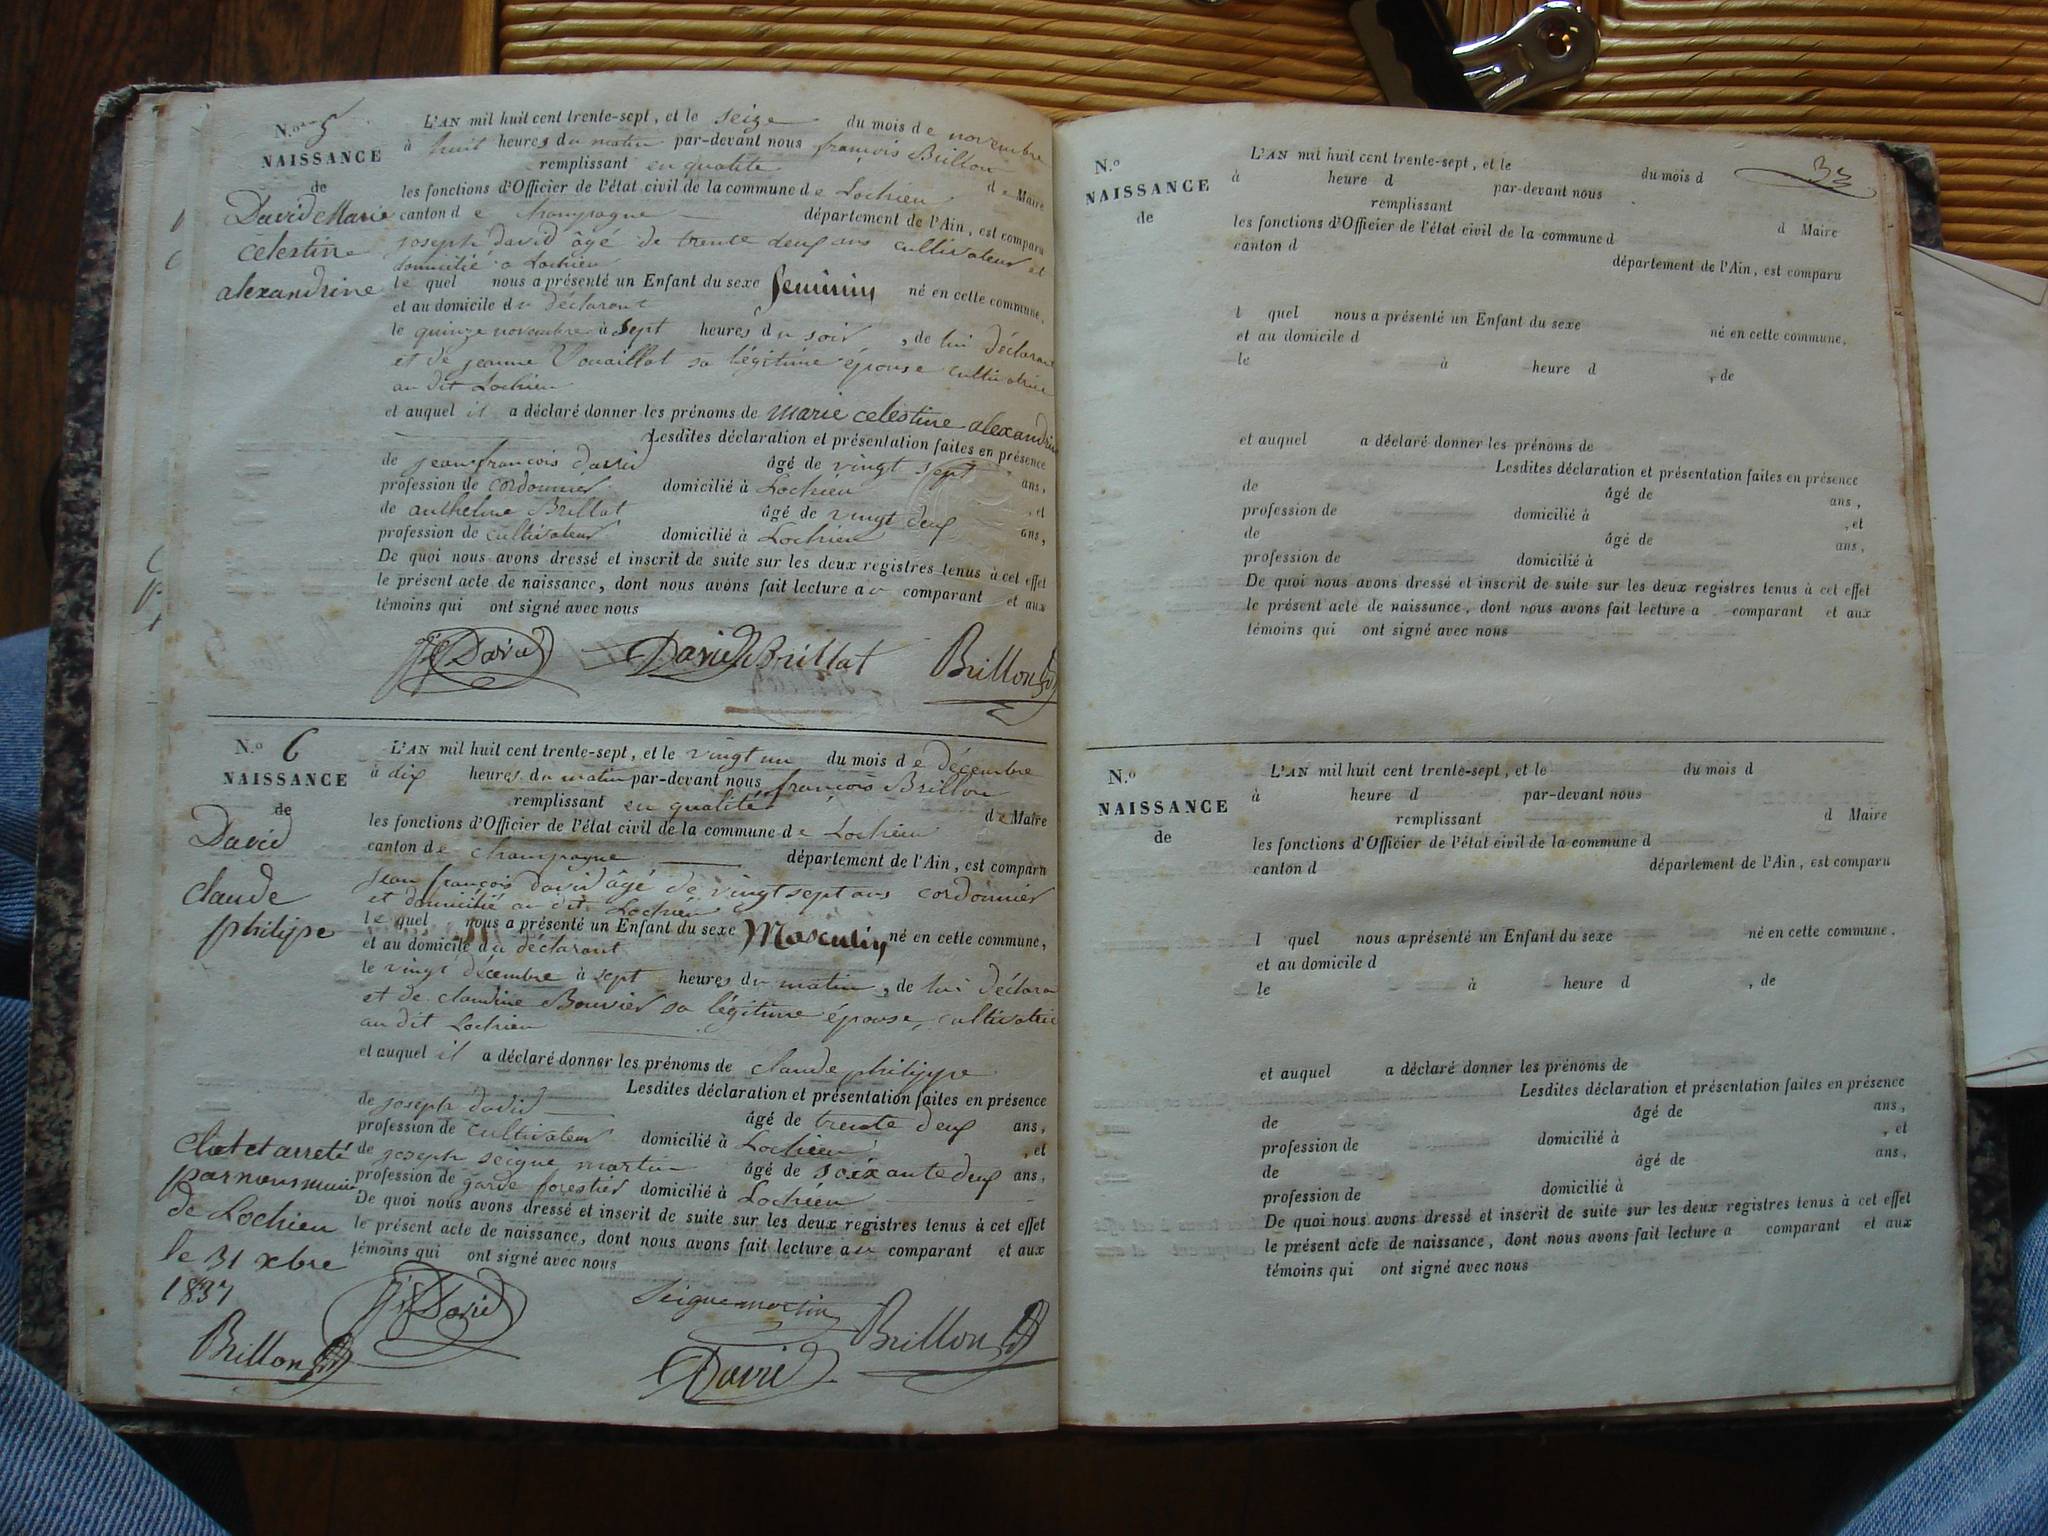 N.o 5
NAISSANCE
de
David Marie
celestine
alexandrine
L'AN mil huit cent trente-sept, et le seize du mois de novembre
à huit heures du matin par-devant nous françois Brillon
remplissant en qualité de Maire
les fonctions d'Officier de l'état civil de la commune de Lochieu
canton de champagne département de l'Ain, est comparu
joseph david âgé de trente deux ans cultivateur et
domicilié a Lochieu
le quel nous a présenté un Enfant du sexe feminin né en cette commune,
et au domicile du déclarant
le quinze novembre à sept heures du soir, de lui déclarant
et de jeanne Vouaillat sa légitime épouse cultivatrice
au dit Lochieu
et auquel il a déclaré donner les prénoms de marie celestine alexandrine
Lesdites déclaration et présentation faites en présence
de jean françois david âgé de vingt sept ans,
profession de cordonnier domicilié à Lochieu, et
de anthelme Brillat âgé de vingt deux ans,
profession de cultivateur domicilié à Lochieu
De quoi nous avons dressé et inscrit de suite sur les deux registres tenus à cet effet
le présent acte de naissance, dont nous avons fait lecture au comparant et aux
témoins qui ont signé avec nous
David David Brillat Brillon
N.o 6
NAISSANCE
de
David
claude
philippe
L'AN mil huit cent trente-sept, et le vingt un du mois de décembre
à dix heures du matin par-devant nous françois Brillon
remplissant en qualité de Maire
les fonctions d'Officier de l'état civil de la commune de Lochieu
canton de champagne département de l'Ain, est comparu
jean françois david âgé de vingt sept ans cordonnier
et domicilié au dit Lochieu
le quel nous a présenté un Enfant du sexe Masculin né en cette commune,
et au domicile du déclarant
le vingt décembre à sept heures du matin, de lui déclara
et de claudine Bouvier sa légitime épouse, cultivatrice
au dit Lochieu
et auquel il a déclaré donner les prénoms de claude philippe
Lesdites déclaration et présentation faites en présence
de joseph david âgé de trente deux ans,
profession de cultivateur domicilié à Lochieu, et
de joseph seigne martin âgé de soixante deux ans,
profession de garde forestier domicilié à Lochieu
De quoi nous avons dressé et inscrit de suite sur les deux registres tenus à cet effet
le présent acte de naissance, dont nous avons fait lecture au comparant et aux
témoins qui ont signé avec nous
Clot et arreté
par nous maire
de Lochieu
le 31 xbre
1837
Brillon
David Seignemartin Brillon
David
33
N.o
NAISSANCE
de
L'AN mil huit cent trente-sept, et le du mois d
à heure d par-devant nous
remplissant d Maire
les fonctions d'Officier de l'état civil de la commune d
canton d département de l'Ain, est comparu
l quel nous a présenté un Enfant du sexe né en cette commune,
et au domicile d
le à heure d , de
et auquel a déclaré donner les prénoms de
Lesdites déclaration et présentation faites en présence
de âgé de ans,
profession de domicilié à , et
de âgé de ans,
profession de domicilié à
De quoi nous avons dressé et inscrit de suite sur les deux registres tenus à cet effet
le présent acte de naissance, dont nous avons fait lecture a comparant et aux
témoins qui ont signé avec nous
N.o
NAISSANCE
de
L'AN mil huit cent trente-sept, et le du mois d
à heure d par-devant nous
remplissant d Maire
les fonctions d'Officier de l'état civil de la commune d
canton d département de l'Ain, est comparu
l quel nous a présenté un Enfant du sexe né en cette commune.
et au domicile d
le à heure d , de
et auquel a déclaré donner les prénoms de
Lesdites déclaration et présentation faites en présence
de âgé de ans,
profession de domicilié à , et
de âgé de ans,
profession de domicilié à
De quoi nous avons dressé et inscrit de suite sur les deux registres tenus à cet effet
le présent acte de naissance, dont nous avons fait lecture a comparant et aux
témoins qui ont signé avec nous